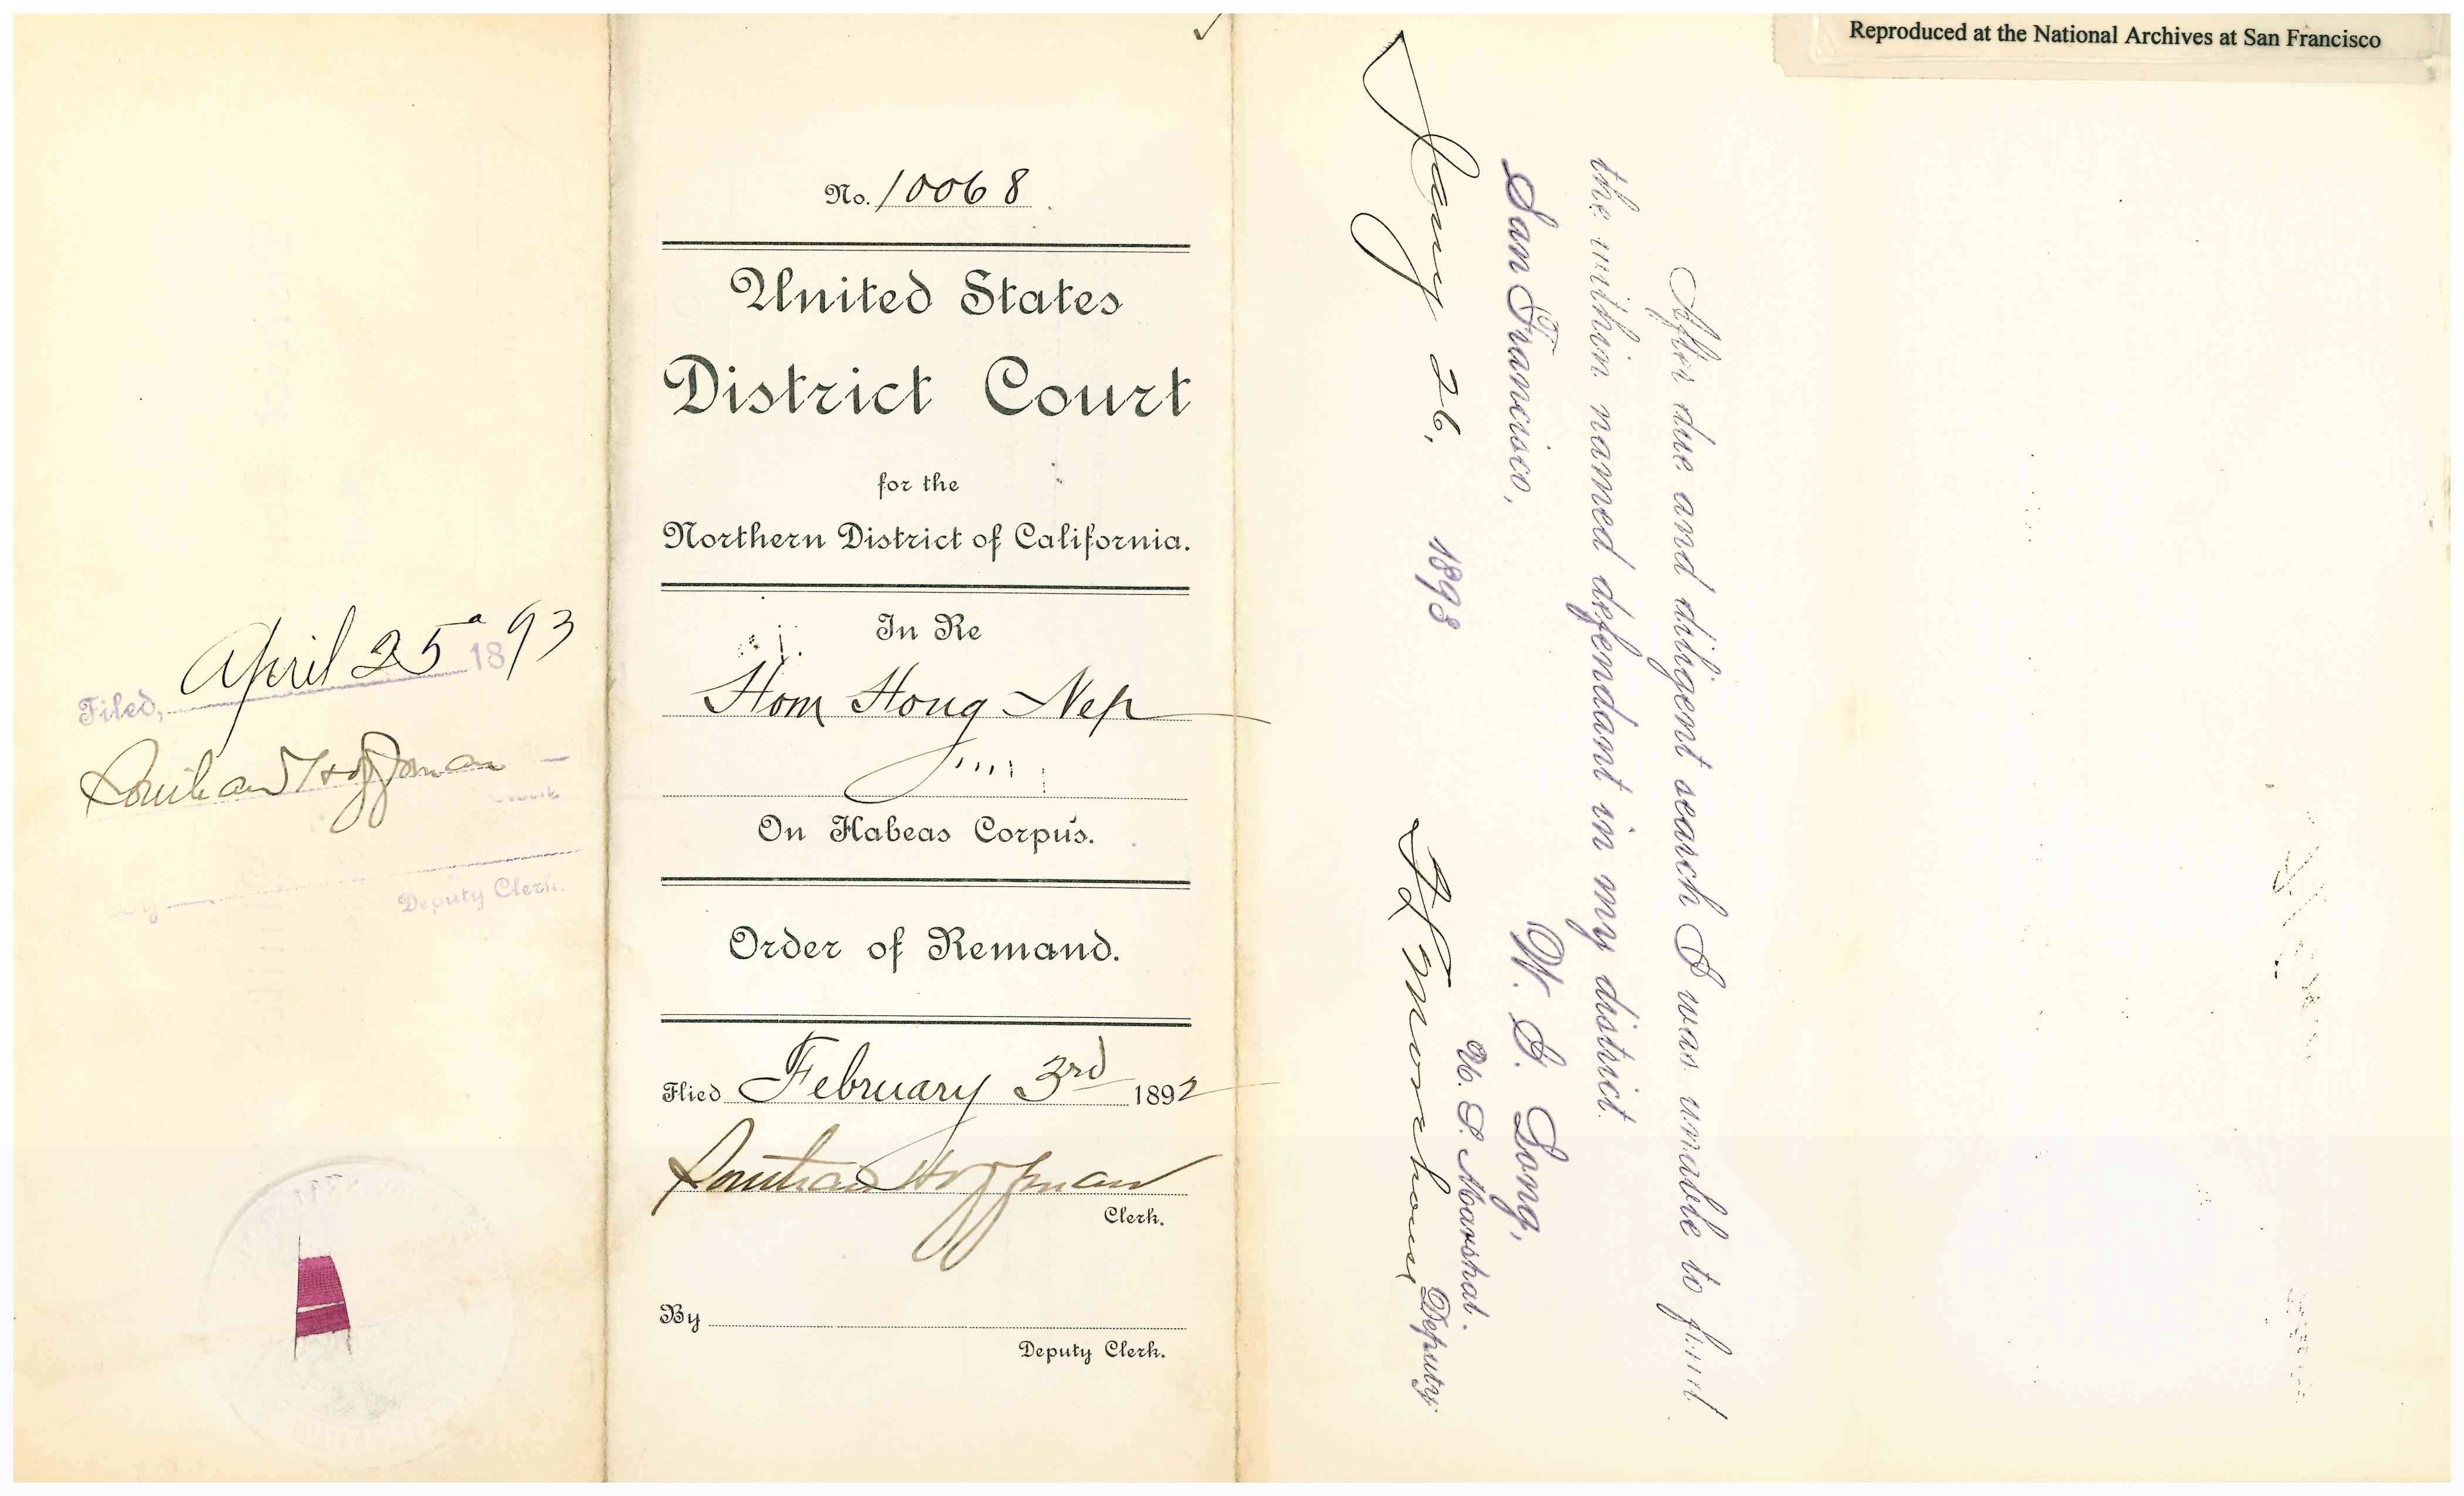 Reproduced at the National Archives at San Francisco
Filed, April 25 1893
Southard Hoffman
Deputy Clerk.
No. 10068
United States
District Court
for the
Northern District of California.
In Re
Hom Hong Nep
On Habeas Corpus.
Order of Remand.
Filed February 3rd 1892
Southard Hoffman
Clerk.
By
Deputy Clerk.
After due and diligent search I was unable to find
the within named defendant in my district.
San Francisco,
W. G. Long,
U. S. Marshal.
Jany 26, 1893
Deputy